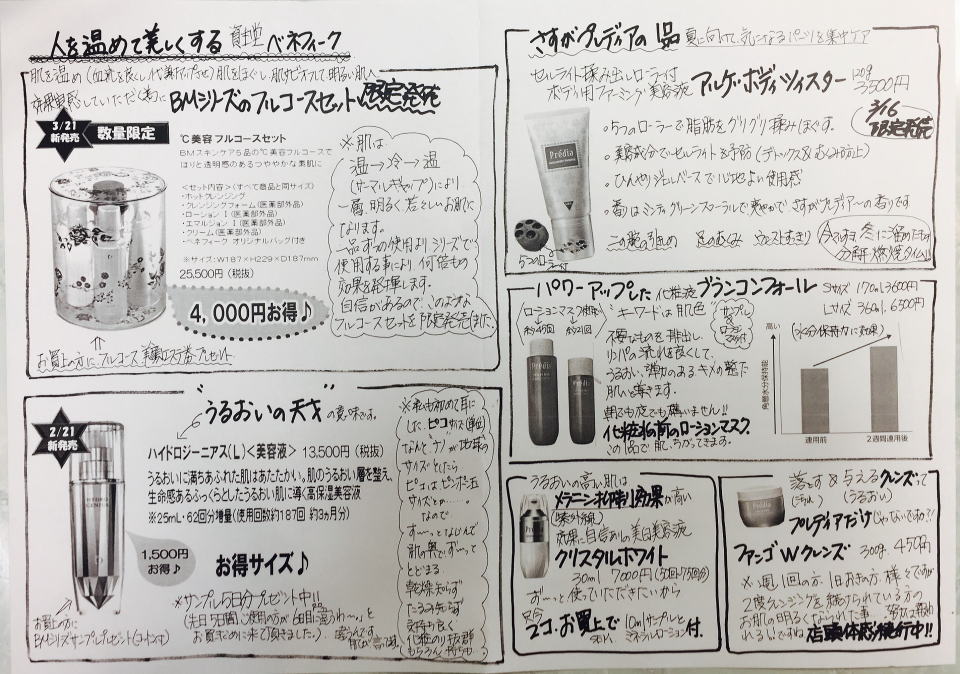 人を温めて美しくする 資生堂 ベネフィーク
肌を温め(血流を良くし代謝アップさせ)肌をほぐし、肌をピカッて明るい肌へ
効果実感していただく為に BMシリーズのフルコースセット 限定発売
3/21
新発売
数量限定
℃美容フルコースセット
BMスキンケア5品の℃美容フルコースで
ほりと透明感のあるつややかな素肌に
<セット内容>(すべて商品と同サイズ)
・ホットクレンジング
・クレンジングフォーム(医薬部外品)
・ローション Ⅰ(医薬部外品)
・エマルション Ⅰ(医薬部外品)
・クリーム(医薬部外品)
・ベネフィーク オリジナルバッグ付き
※サイズ:W187×H229×D187mm
25,500円(税抜)
4,000円お得♪
お買上の方に、フルコース エステ券プレゼント
※肌は
温→冷→温
(サーマルギャップ)により
一層、明るく、若々しいお肌に
なります。
一品ずつの使用よりシリーズで
使用する事により、何倍もの
効果を発揮します。
自信があるので、このような
フルコースセットを限定発売しました。
2/21
新発売
"うるおいの天才"の意味です。
ハイドロジーニアス(L)<美容液> 13,500円(税抜)
うるおいに満ちあふれた肌はあたたかい。肌のうるおい層を整え、
生命感あるふっくらとしたうるおい肌に導く高保湿美容液
※25mL・62回分増量(使用回数約187回 約3ヵ月分)
1,500円
お得♪
お得サイズ♪
※サンプル5日分プレゼント中!!
お買上の方に
BMシリーズサンプルプレゼント
※私も初めて耳に
した、ピコサイズ(単位)
なんと、ナノが地球の
サイズとしたら
ピコは、ピンポン玉
サイズとか……。
なので
す〜っとなじんで
肌の奥でず〜っと
とどまる
乾燥知らず
たるみ知らず
気持ち良く
化粧のり抜群
もちろん、持ちも
さすがプレディアの1品 夏に向けて、気になるパーツを集中ケア
セルライト揉み出しローラー付
ボディ用ファーミング美容液 アルゲ・ボディ ツイスター 120g 3,500円
3/16
限定発売
Prédia
5つのローラー付
◦5つのローラーで脂肪をグリグリ揉みほぐす。
◦美容成分でセルライトを予防(デトックス&むくみ防止)
◦ひんやりジェルベースで心地よい使用感
◦香りはミンティグリーンフローラルで爽やかでさすがプレディアーの香りです
二の腕の引きしめ 足のむくみ ウエストすっきり
今スグ 冬に溜めたもの
分解 燃焼タイム!!
パワーアップした 化粧液 ブランコンフォール Sサイズ 170ml 3,600円
Lサイズ 360ml 6,500円
キーワードは肌色
サンプル
&
ローション
マスク付
不要なものを排出し、
リンパの流れを良くして、
うるおい、弾力のあるキメの整った
肌へ導きます。
朝でも夜でも構いません!!
化粧水の前のローションマスク。
この1品で肌、ちがってきます。
高い
角層水分保持能
(水分保持力に効果)
連用前 2週間連用後
うるおいの高い肌は
メラニン抑制効果が高い
(紫外線)
効果に自信ありの美白美容液
クリスタルホワイト
30ml 7000円
ず〜っと使っていただきたいから
2コ お買上で 10mlサンプルと
ミネラルローション付。
落とす&与えるクレンズって
(汚れ) (うるおい)
プレディアだけじゃないですか?!
ファンゴWクレンズ 300g 4,500円
※週1回の方、1日おきの方、様々ですが
2度クレンジングを続けられている方の
お肌の明るくなられた事
店頭体感続行中!!